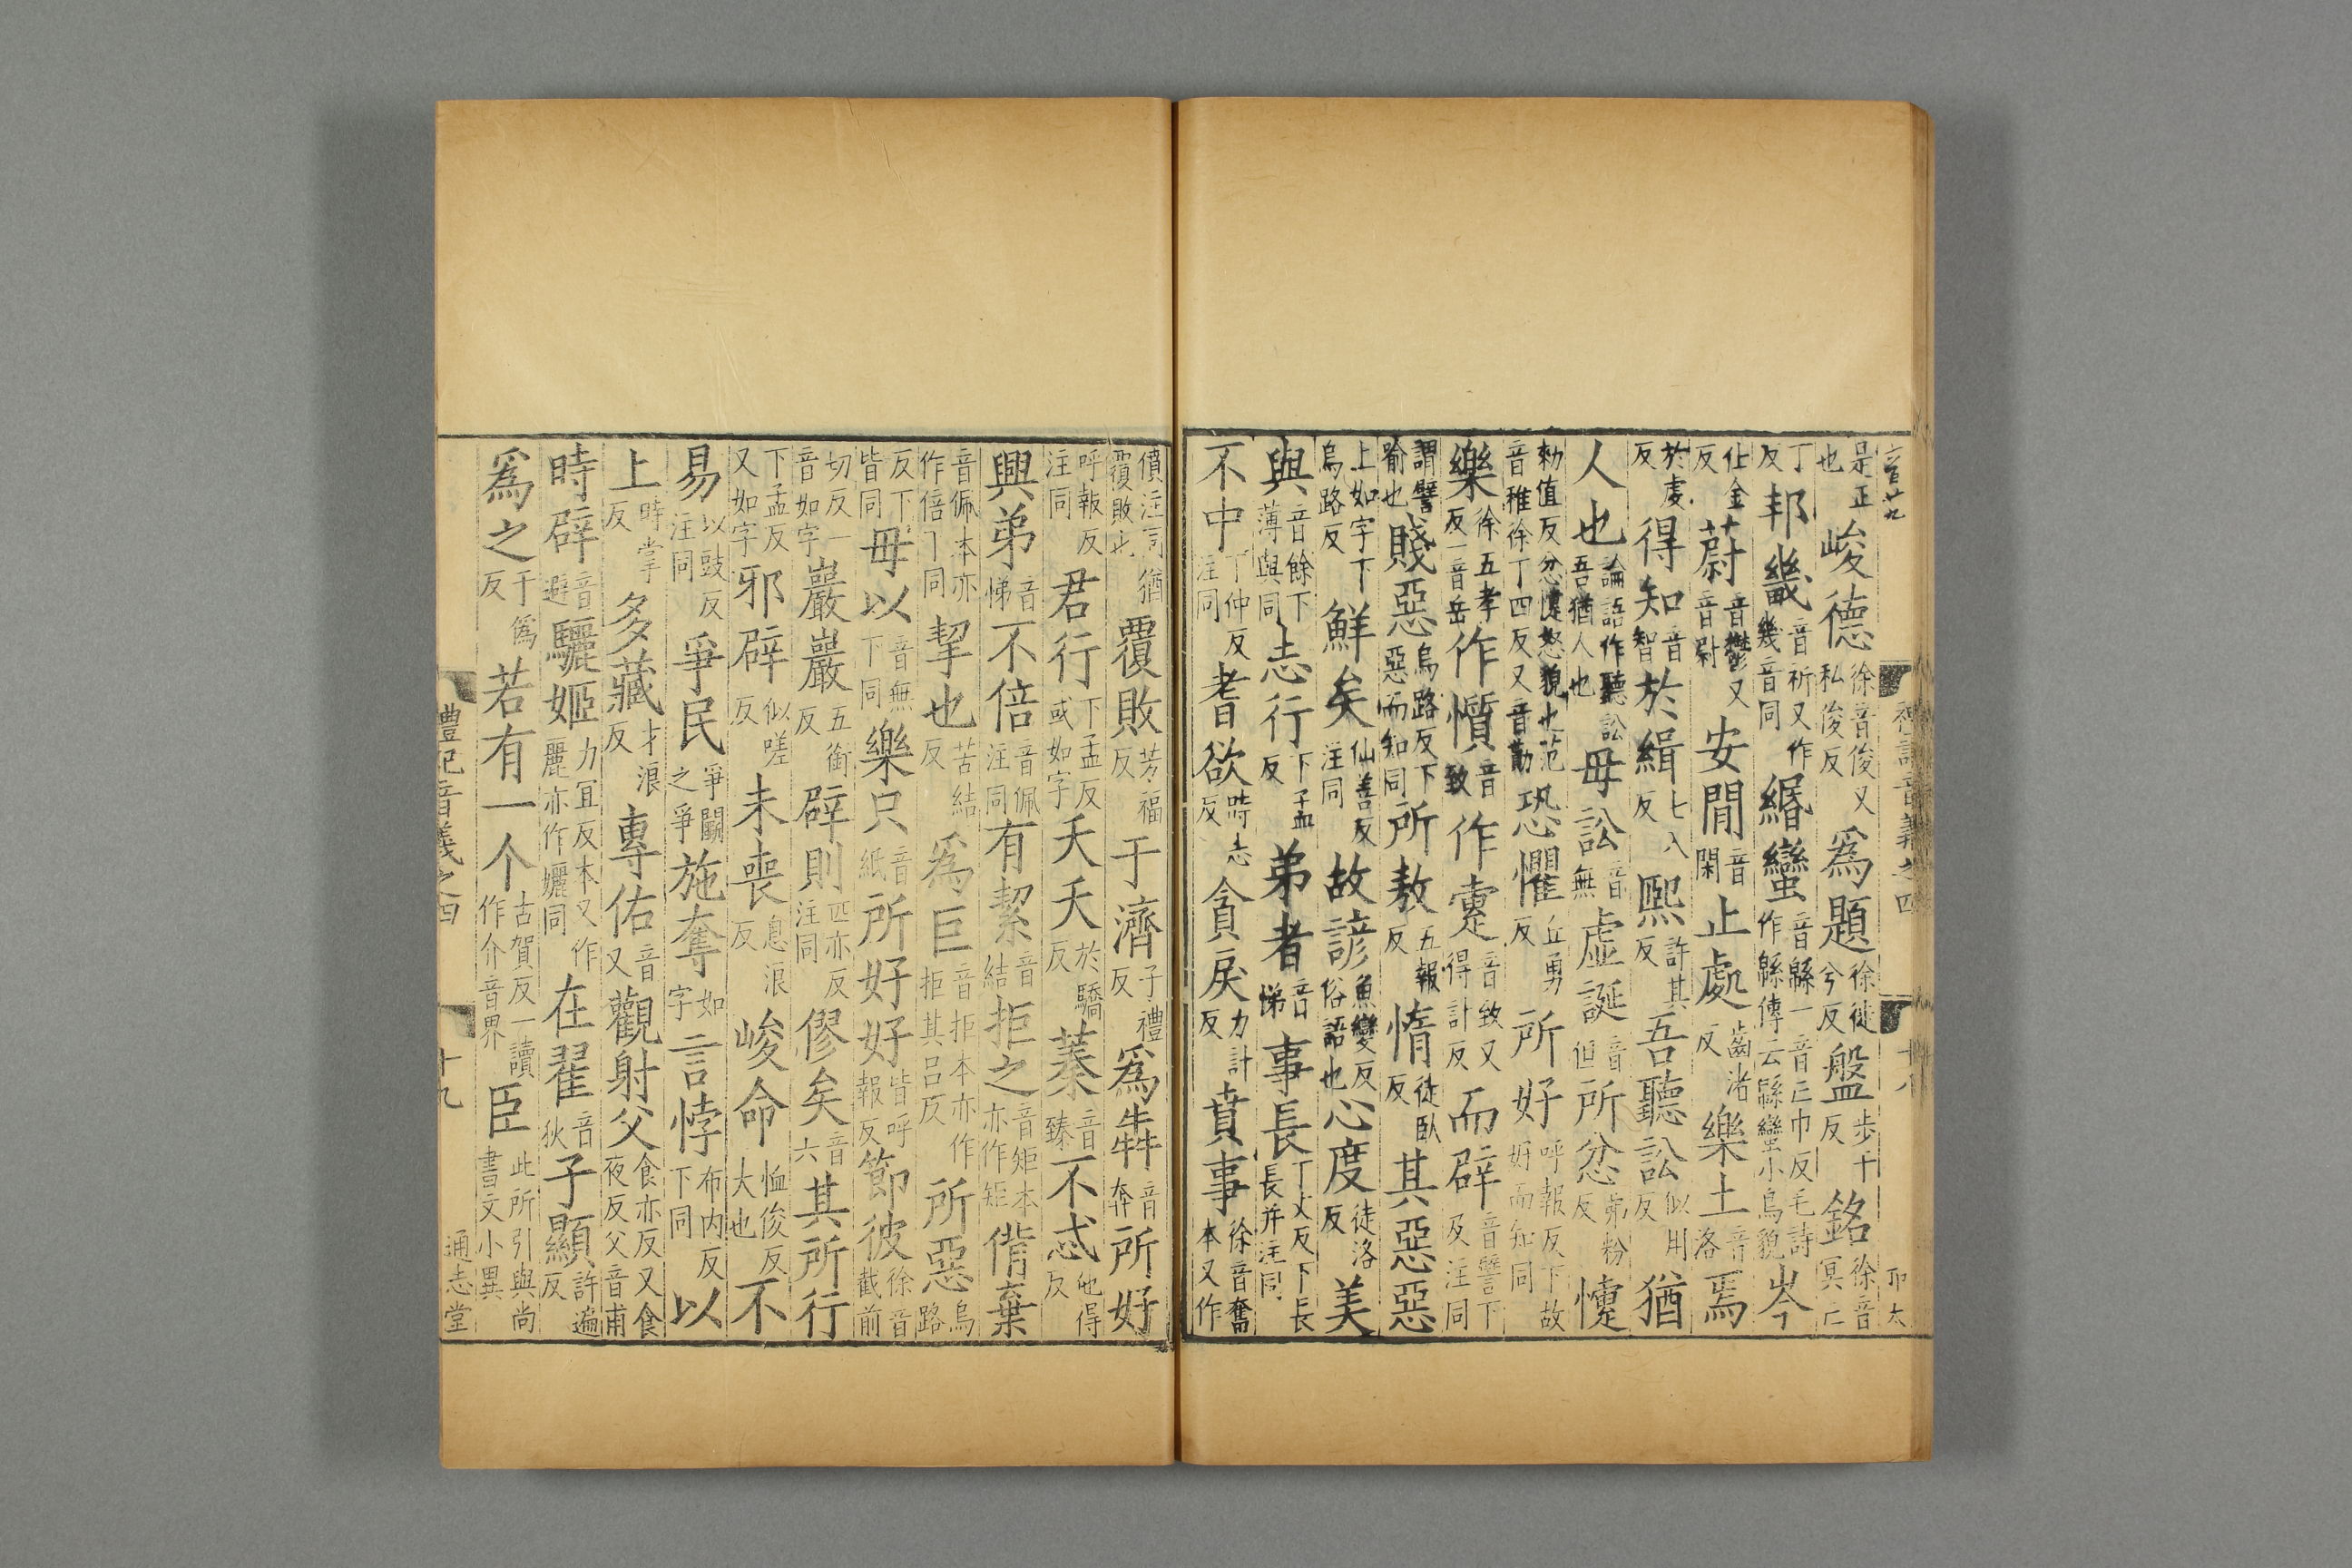 禮記音義之四 十八
是正也峻德徐音俊又私俊反爲題徐徒兮反盤步干反銘徐音冥亡
丁反邦畿音祈又作幾音同緡蠻音緜一音亡巾反毛詩作緜傳云緜蠻小鳥貌岑
仕金反蔚音鬱又音尉安閒音閑止處齒渚反樂土音洛焉
於虔反得知音智於緝七入反熙許其反吾聽訟似用反猶
人也論語作聽訟吾猶人也毋訟音無虛誕音但所忿弗粉反懥
勑值反忿懥怒貌也范音稚徐丁四反又音勤恐懼丘勇反所好呼報反下故好而知同
樂徐五孝反一音岳作懫音致作疐音致又得計反而辟音譬下及注同
謂譬喻也賤惡烏路反下惡而知同所敖五報反惰徒臥反其惡惡
上如字下烏路反鮮矣仙善反注同故諺魚變反俗語也心度徒洛反美
與音餘下薄與同志行下孟反弟者音悌事長丁丈反下長長并注同
不中丁仲反注同耆欲時志反貪戾力計反賁事徐音奮本又作
僨注同猶覆敗也覆敗芳福反于濟子禮反爲犇音奔所好
呼報反注同君行下孟反或如字夭夭於驕反蓁音臻不忒他得反
興弟音悌不倍音佩注同有絜音結拒之音矩本亦作矩偝棄
音佩本亦作倍下同挈也苦結反爲巨音拒本亦作拒其呂反所惡烏路
反下皆同毋以音無下同樂只音紙所好好皆呼報反節彼徐音截前
切反一音如字巖巖五銜反辟則匹亦反注同僇矣音六其所行
下孟反又如字邪辟似嗟反未喪息浪反峻命恤俊反大也不
易以豉反注同爭民爭鬬之爭施奪如字言悖布內反下同以
上時掌反多藏才浪反專佑音又觀射父食亦反又食夜反父音甫
時辟音避驪姬力宜反本又作麗亦作孋同在翟音狄子顯許遍反
爲之于僞反若有一个古賀反一讀作介音界臣此所引與尚書文小異
禮記音義之四 十九 通志堂